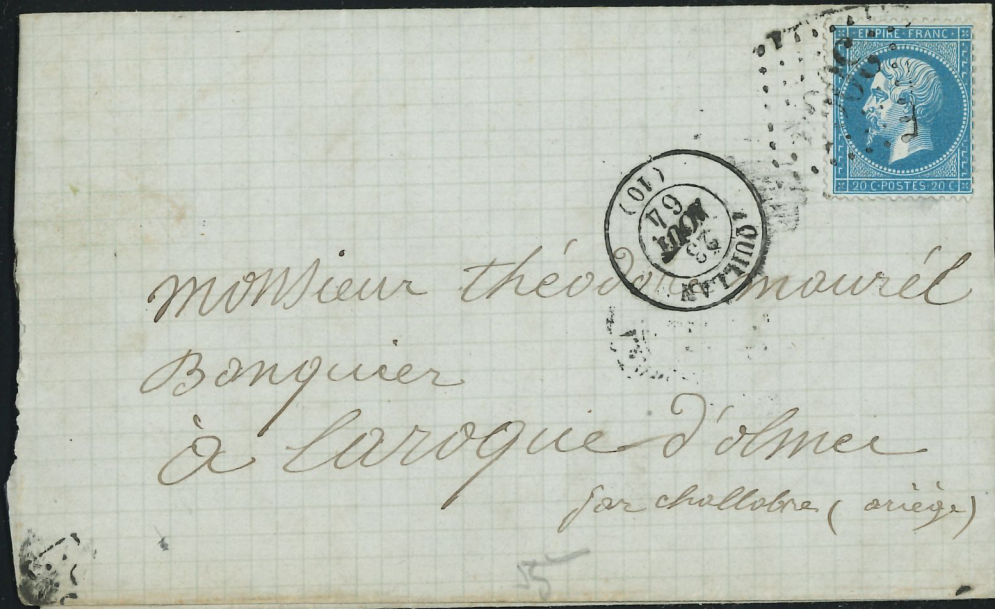 EMPIRE FRANC
20 C POSTES 20 C
QUILLAN
(10)
23
AOUT
64
Monsieur théodore mourél
Banquier
à laroque d'olmes
par challabre (ariège)